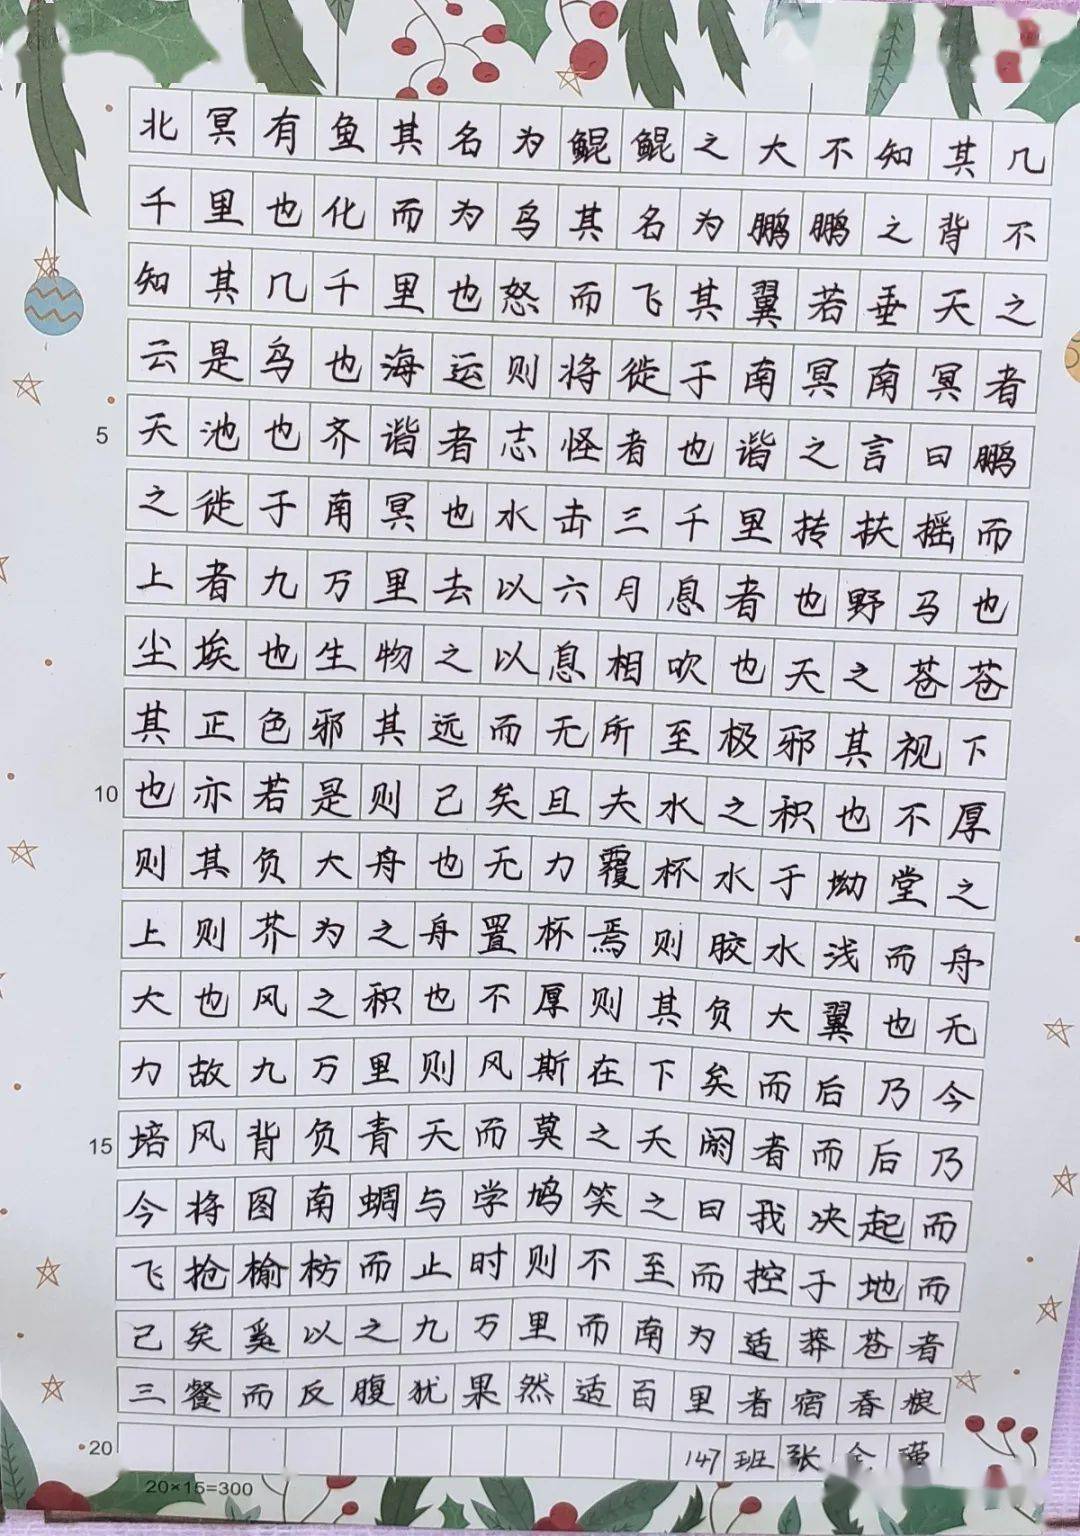 北冥有鱼其名为鲲鲲之大不知其几
千里也化而为鸟其名为鹏鹏之背不
知其几千里也怒而飞其翼若垂天之
云是鸟也海运则将徙于南冥南冥者
5 天池也齐谐者志怪者也谐之言曰鹏
之徙于南冥也水击三千里抟扶摇而
上者九万里去以六月息者也野马也
尘埃也生物之以息相吹也天之苍苍
其正色邪其远而无所至极邪其视下
10 也亦若是则已矣且夫水之积也不厚
则其负大舟也无力覆杯水于坳堂之
上则芥为之舟置杯焉则胶水浅而舟
大也风之积也不厚则其负大翼也无
力故九万里则风斯在下矣而后乃今
15 培风背负青天而莫之夭阏者而后乃
今将图南蜩与学鸠笑之曰我决起而
飞抢榆枋而止时则不至而控于地而
已矣奚以之九万里而南为适莽苍者
三餐而反腹犹果然适百里者宿舂粮
20 147班张
20×15=300